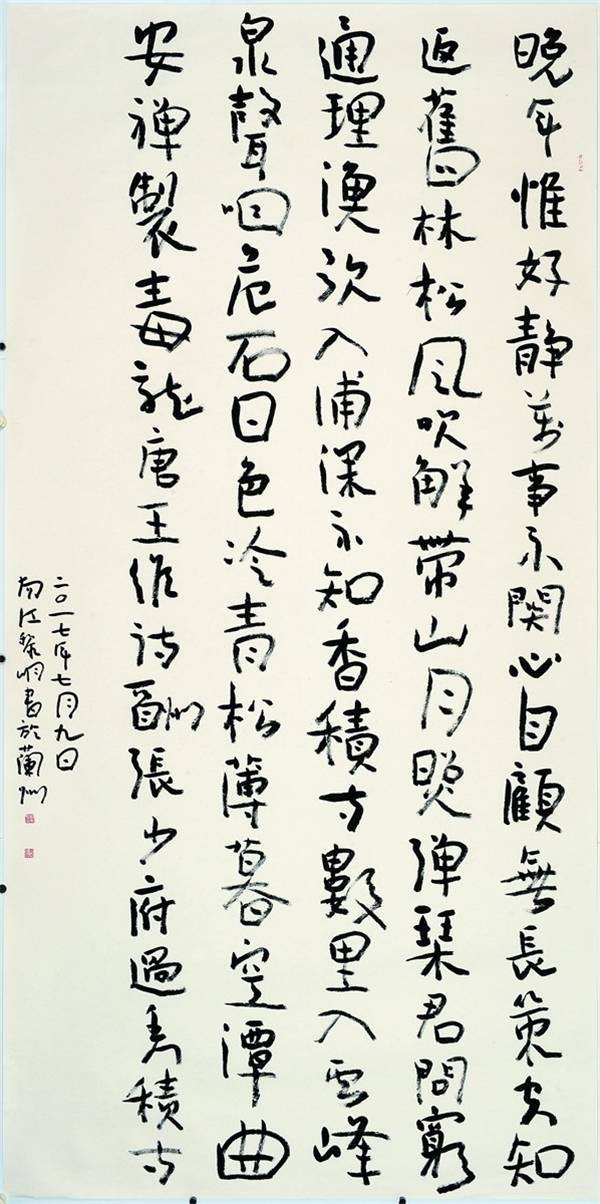 晚年惟好静萬事不関心自顧無長策空知
返舊林松風吹解帶山月照弹琴君問窮
通理漁歌入浦深不知香積寺數里入云峰
泉聲咽危石日色冷青松薄暮空潭曲
安禅製毒龍唐王维诗酬張少府過香積寺
二〇一七年七月九日
黎明書於蘭州